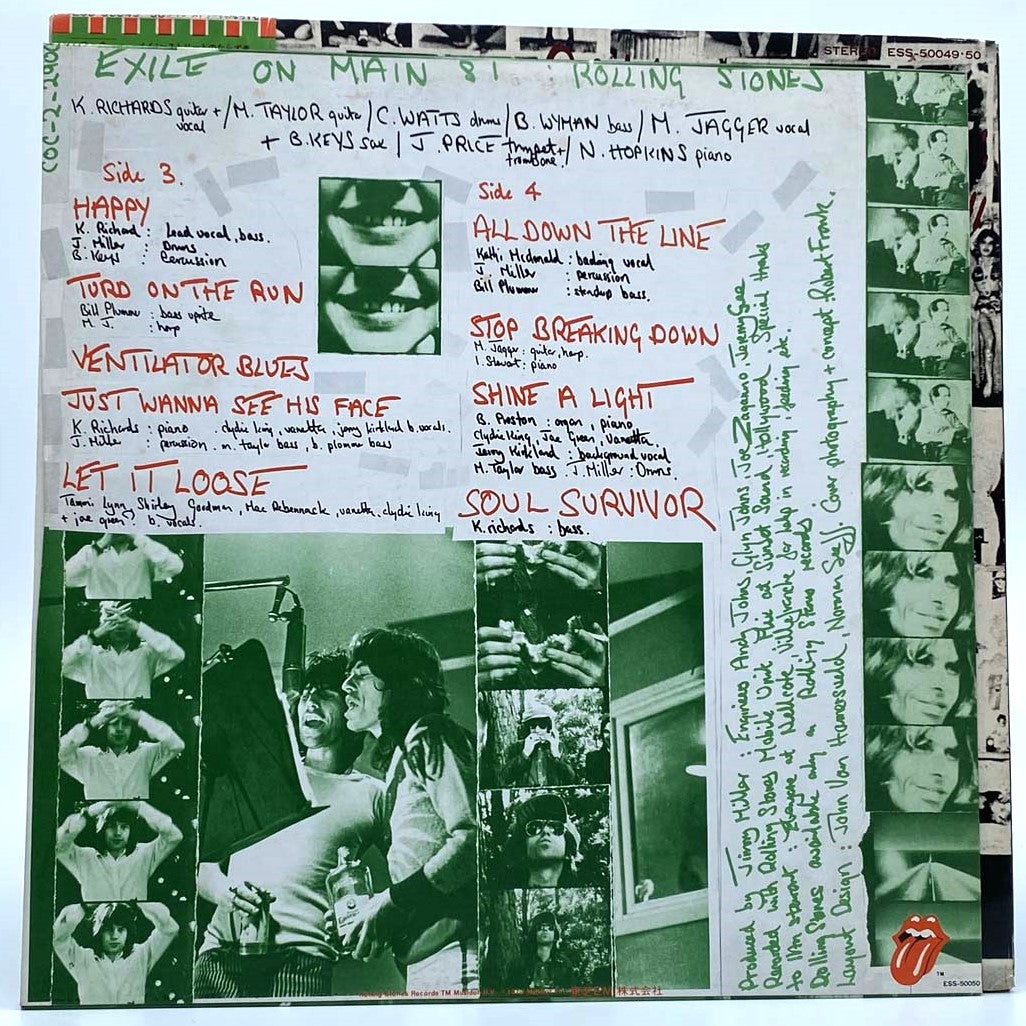 STEREO ESS-50049·50
COC-2-2900
EXILE ON MAIN ST ROLLING STONES
K. RICHARDS guitar + vocal / M. TAYLOR guitar / C. WATTS drums / B. WYMAN bass / M. JAGGER vocal
+ B. KEYS sax / J. PRICE trumpet + trombone / N. HOPKINS piano
Side 3.
HAPPY
K. Richard : Lead vocal, bass.
J. Miller : Drums
B. Keys : Percussion
TURD ON THE RUN
Bill Plummer : bass uprite
M. J. : harp
VENTILATOR BLUES
JUST WANNA SEE HIS FACE
K. Richards : piano clydie king, vanetta, jerry kirkland b. vocals.
J. Miller : percussion. m. taylor bass, b. plummer bass
LET IT LOOSE
Tammi Lynn, Shirley Goodman, Mac Rebennack, vanetta, clydie king
+ joe green : b. vocals.
Side 4
ALL DOWN THE LINE
Kathi Mcdonald : backing vocal
J. Miller : percussion
Bill Plummer : standup bass.
STOP BREAKING DOWN
M. Jagger : guitar, harp.
I. Stewart : piano
SHINE A LIGHT
B. Preston : organ, piano
Clydie King, Joe Green, Vanetta.
Jerry Kirkland : background vocal
M. Taylor bass J. Miller : Drums.
SOUL SURVIVOR
K. richards : bass.
Produced by Jimmy Miller : Engineers Andy Johns, Glyn Johns, Joe Zagarino, Jeremy Gee
Recorded with Rolling Stones Mobile Unit. Mixed at Sunset Sound Hollywood. Special thanks
to Ian stewart : Everyone at Nellcote, Villefranche for help in recording, feeding etc.
Rolling Stones available only on Rolling Stones records.
Layout Design : John Van Hamersveld, Norman Seeff Cover photography + concept Robert Frank.
TM
ESS-50050
株式会社